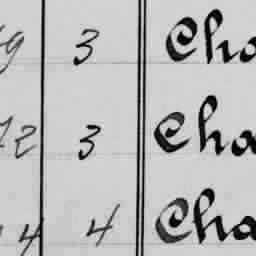 9 3 Cha
72 3 Cha
4 4 Cha